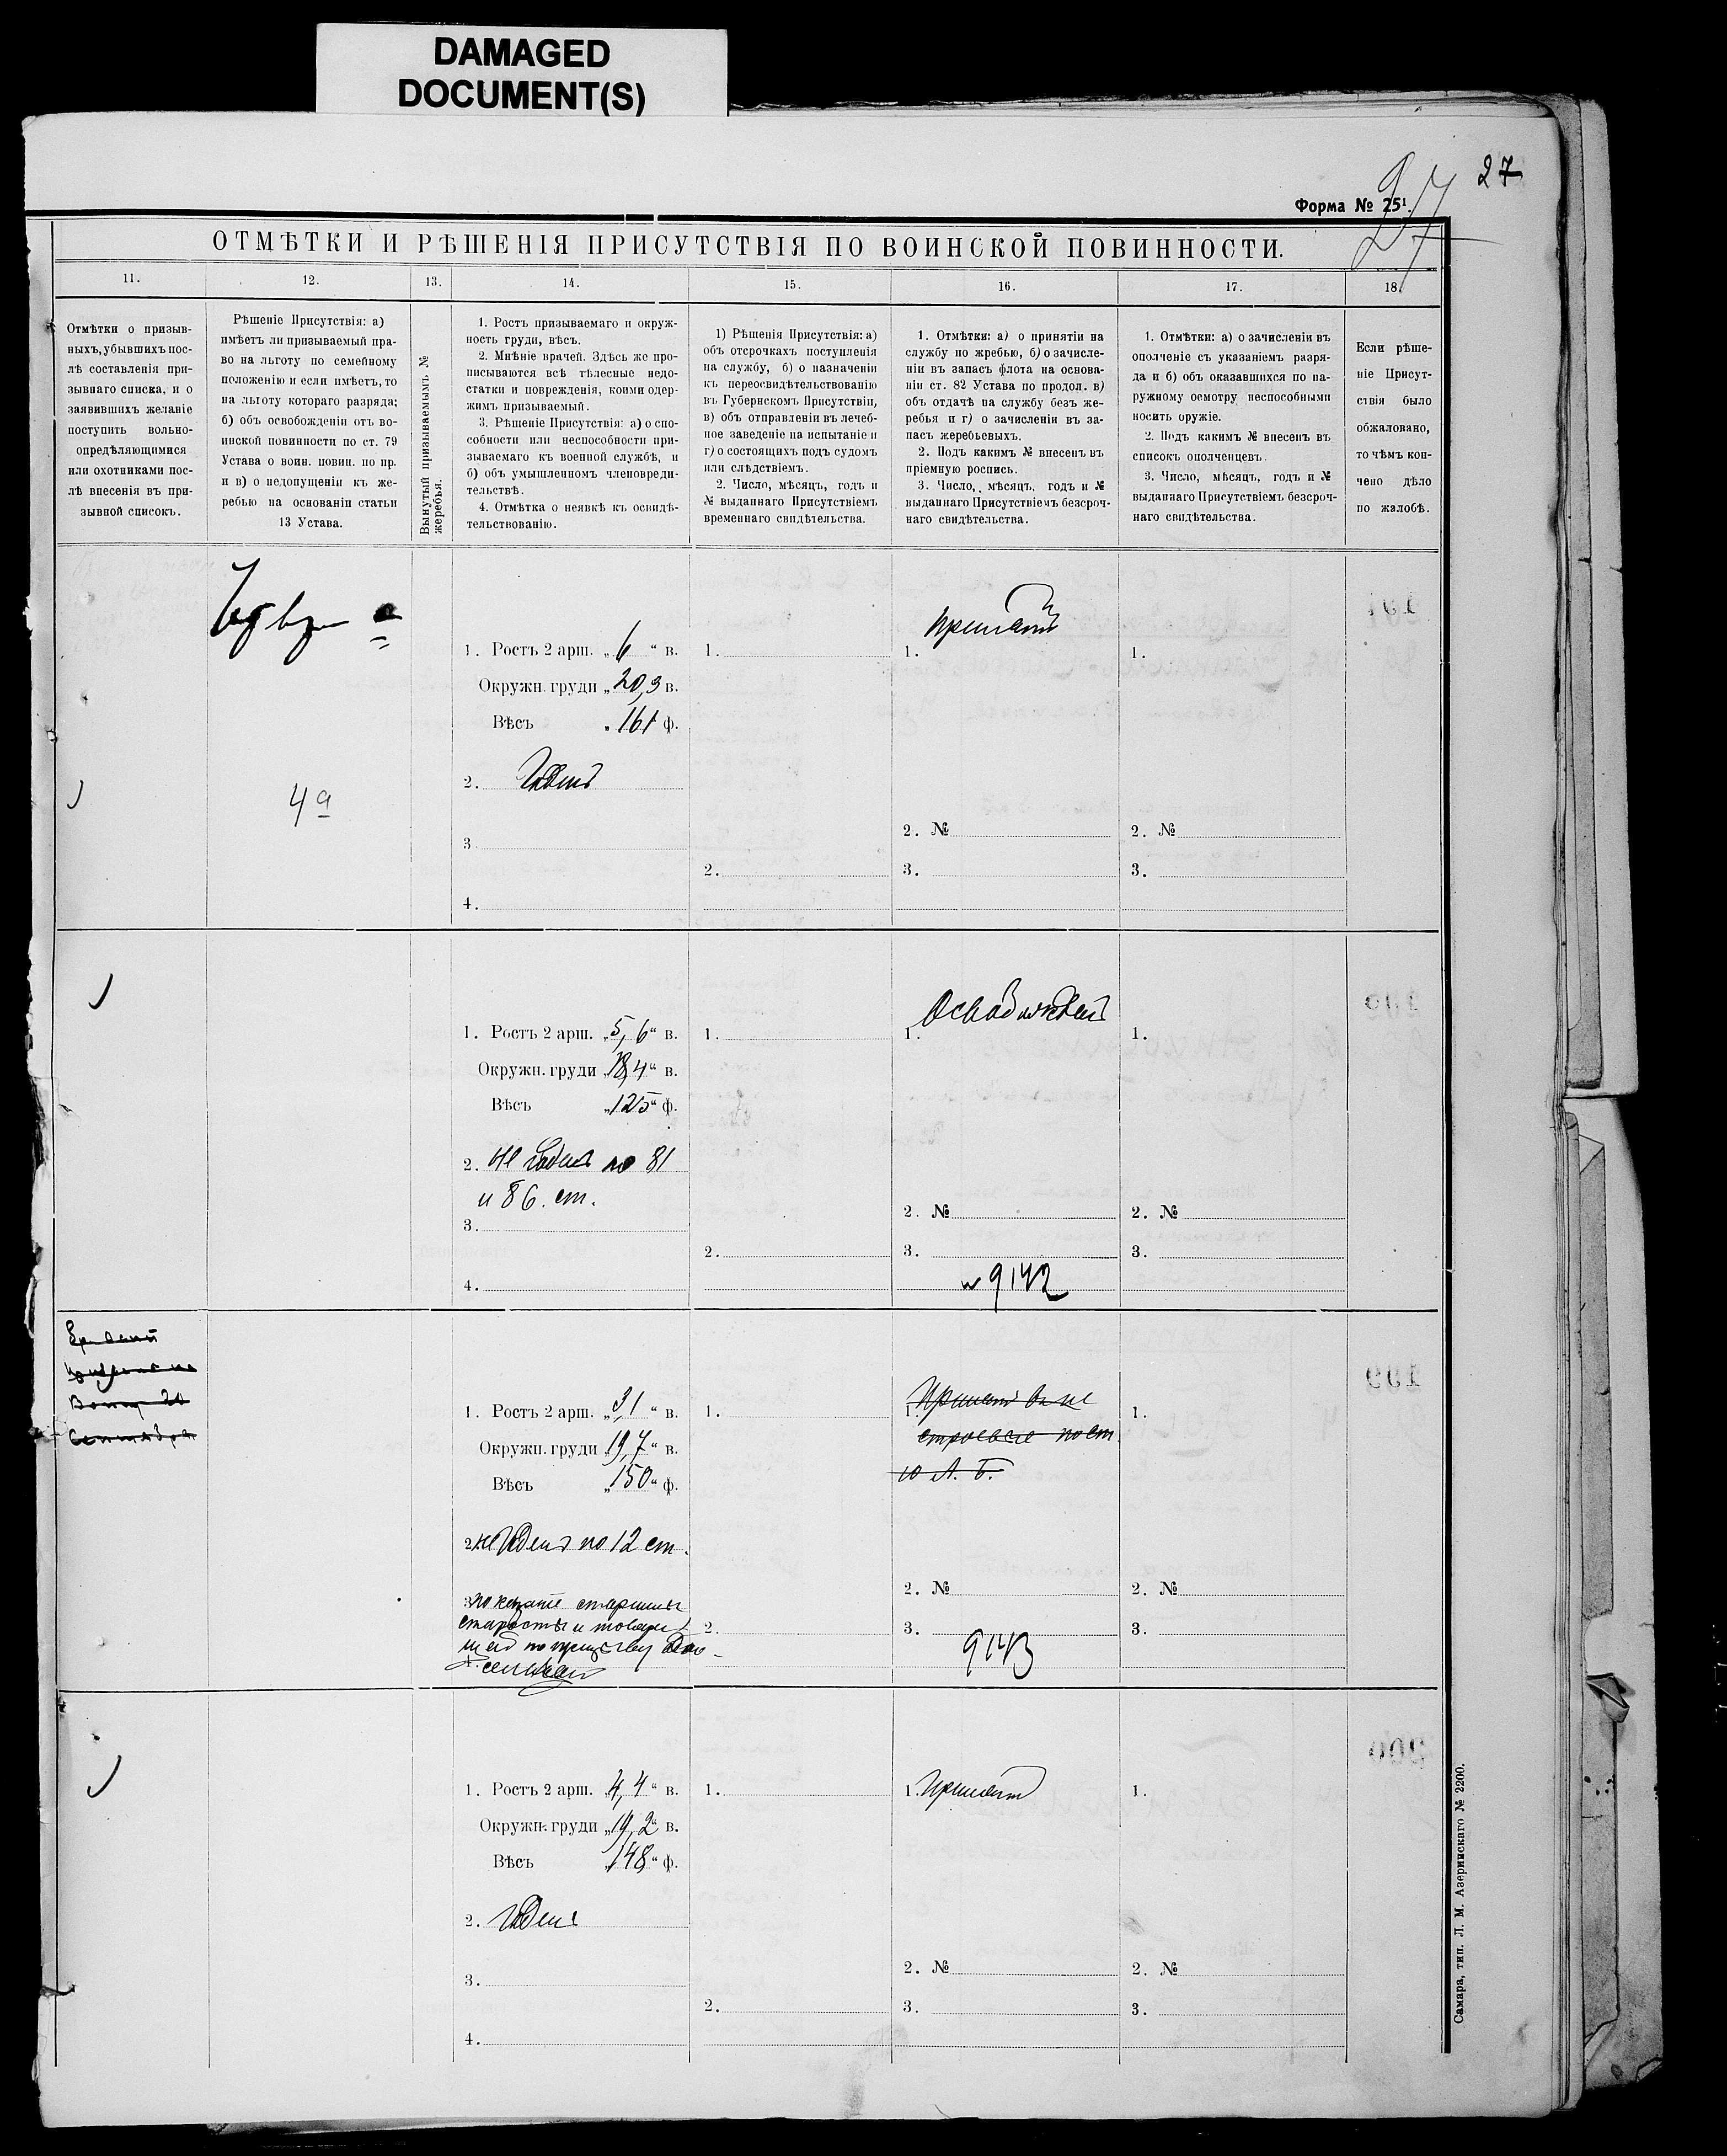 DAMAGED
DOCUMENT(S)
27
Форма № 25¹.
27
ОТМѢТКИ И РѢШЕНІЯ ПРИСУТСТВІЯ ПО ВОИНСКОЙ ПОВИННОСТИ.
11.
12.
13.
14.
15.
16.
17.
18.
Отмѣтки о призыв-
ныхъ, убывшихъ пос-
лѣ составленія при-
зывнаго списка, и о
заявившихъ желаніе
поступить вольно-
опредѣляющимися
или охотниками пос-
лѣ внесенія въ при-
зывной списокъ.
Рѣшеніе Присутствія: а)
имѣетъ ли призываемый пра-
во на льготу по семейному
положенію и если имѣетъ, то
на льготу котораго разряда;
б) объ освобожденіи отъ во-
инской повинности по ст. 79
Устава о воин. повин. по пр.
и в) о недопущеніи къ же-
ребью на основаніи статьи
13 Устава.
Вынутый призываемымъ №
жеребья.
1. Ростъ призываемаго и окруж-
ность груди, вѣсъ.
2. Мнѣніе врачей. Здѣсь же про-
писываются всѣ тѣлесные недо-
статки и поврежденія, коими одер-
жимъ призываемый.
3. Рѣшеніе Присутствія: а) о спо-
собности или неспособности при-
зываемаго къ военной службѣ, и
б) объ умышленномъ членовреди-
тельствѣ.
4. Отмѣтка о неявкѣ къ освидѣ-
тельствованію.
1) Рѣшенія Присутствія: а)
объ отсрочкахъ поступленія
на службу, б) о назначеніи
къ переосвидѣтельствованію
въ Губернскомъ Присутствіи,
в) объ отправленіи въ лечеб-
ное заведеніе на испытаніе и
г) о состоящихъ подъ судомъ
или слѣдствіемъ.
2. Число, мѣсяцъ, годъ и
№ выданнаго Присутствіемъ
временнаго свидѣтельства.
1. Отмѣтки: а) о принятіи на
службу по жребью, б) о зачисле-
ніи въ запасъ флота на основа-
ніи ст. 82 Устава по продол. в)
объ отдачѣ на службу безъ же-
ребья и г) о зачисленіи въ за-
пасъ жеребьевыхъ.
2. Подъ какимъ № внесенъ въ
пріемную роспись.
3. Число, мѣсяцъ, годъ и №
выданнаго Присутствіемъ безсроч-
наго свидѣтельства.
1. Отмѣтки: а) о зачисленіи въ
ополченіе съ указаніемъ разря-
да и б) объ оказавшихся по на-
ружному осмотру неспособными
носить оружіе.
2. Подъ какимъ № внесенъ въ
список ополченцевъ.
3. Число, мѣсяцъ, годъ и №
выданнаго Присутствіемъ безсроч-
наго свидѣтельства.
Если рѣше-
ніе Присут-
ствія было
обжаловано,
то чѣмъ кон-
чено дѣло
по жалобѣ.
4а
1. Ростъ 2 арш. „6“ в.
Окружн. груди „20,3 в.
Вѣсъ „161 ф.
2. Годенъ
3.
4.
1.
2.
принятъ
1.
2. №
3.
1.
2. №
3.
1. Ростъ 2 арш. „5,6“ в.
Окружн. груди „18,4“ в.
Вѣсъ „125“ ф.
2. Не годенъ по 81
и 86. ст.
3.
4.
1.
2.
Освобожденъ
1.
2. №
3.
№ 9142
1.
2. №
3.
Сентября
1. Ростъ 2 арш. „3,1“ в.
Окружн. груди „19,7“ в.
Вѣсъ „150“ ф.
2. не годенъ по 12 ст.
3.
1.
2.
1. Принятъ въ не
строевые по ст.
10 Л. Б.
2. №
3.
9143
1.
2. №
3.
1. Ростъ 2 арш. „4,4“ в.
Окружн. груди „19,2“ в.
Вѣсъ „148“ ф.
2. Годенъ
3.
4.
1.
2.
1. Принятъ
2. №
3.
1.
2. №
3.
Самара, тип. Л. М. Азеринскаго № 2200.